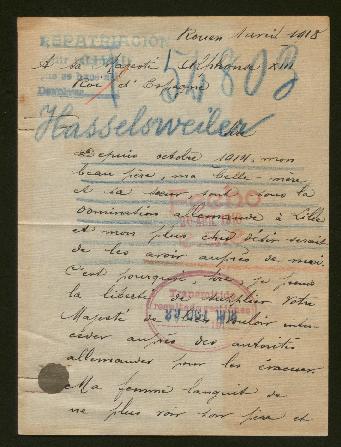 Rouen 1 avril 1918
REPATRIACION
A Sa Majesté Alphonse XIII
Roi d'Espagne
Hasselsweiler
Depuis octobre 1914, mon
beau père, ma belle-mère
et sa sœur, sont sous la
domination allemande à Lille
et mon plus cher désir serait
de les avoir auprès de moi
C'est pourquoi, Sire, je prends
la liberté de supplier Votre
Majesté de vouloir inter-
céder auprès des autorités
allemandes pour les évacuer.
Ma femme languit de
ne plus voir son père et